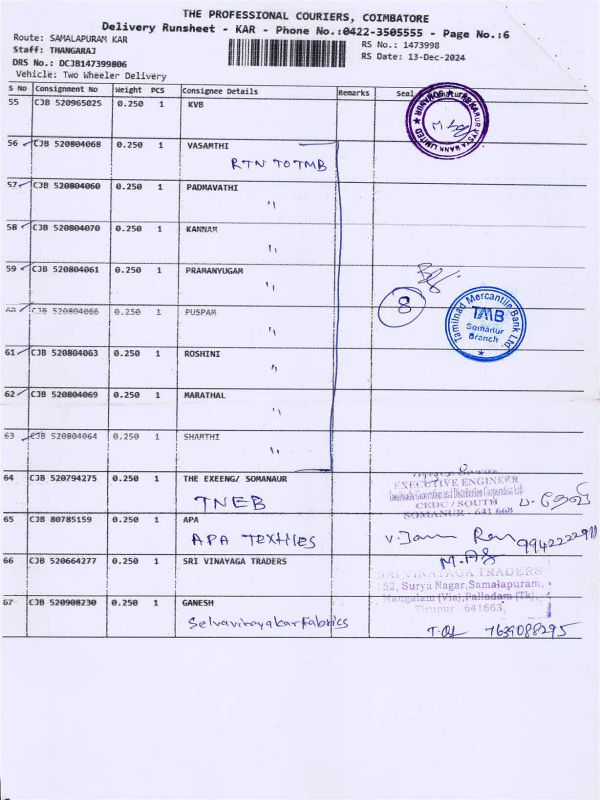 THE PROFESSIONAL COURIERS, COIMBATORE
Delivery Runsheet - KAR - Phone No.:0422-3505555 - Page No.:6
Route: SAMALAPURAM KAR
RS No.: 1473998
Staff: THANGARAJ
RS Date: 13-Dec-2024
DRS No.: DCJB147399806
Vehicle: Two Wheeler Delivery
S No Consignment No Weight PCS Consignee Details Remarks Seal
55 CJB 520965025 0.250 1 KVB
56 CJB 520804068 0.250 1 VASAMTHI
RTN TO TMB
57 CJB 520804060 0.250 1 PADMAVATHI
"
58 CJB 520804070 0.250 1 KANNAM
"
59 CJB 520804061 0.250 1 PRAMANYUGAM
"
CJB 520804066 0.250 1 PUSPAM
"
8
Tamilnad Mercantile Bank Ltd.
TMB
Somanur
Branch
61 CJB 520804063 0.250 1 ROSHINI
"
62 CJB 520804069 0.250 1 MARATHAL
"
63 CJB 520804064 0.250 1 SHAMTHI
"
64 CJB 520794275 0.250 1 THE EXEENG/ SOMANAUR
TNEB
EXECUTIVE ENGINEER
CEDC / SOUTH
SOMANUR - 641 668
65 CJB 80785159 0.250 1 APA
APA TEXTILES
66 CJB 520664277 0.250 1 SRI VINAYAGA TRADERS
SRI VINAYAGA TRADERS
152, Surya Nagar,Samalapuram,
Mangalam (Via),Palladam (Tk),
Tirupur - 641663.
67 CJB 520908230 0.250 1 GANESH
Selvavinayakar Fabrics
7639088295